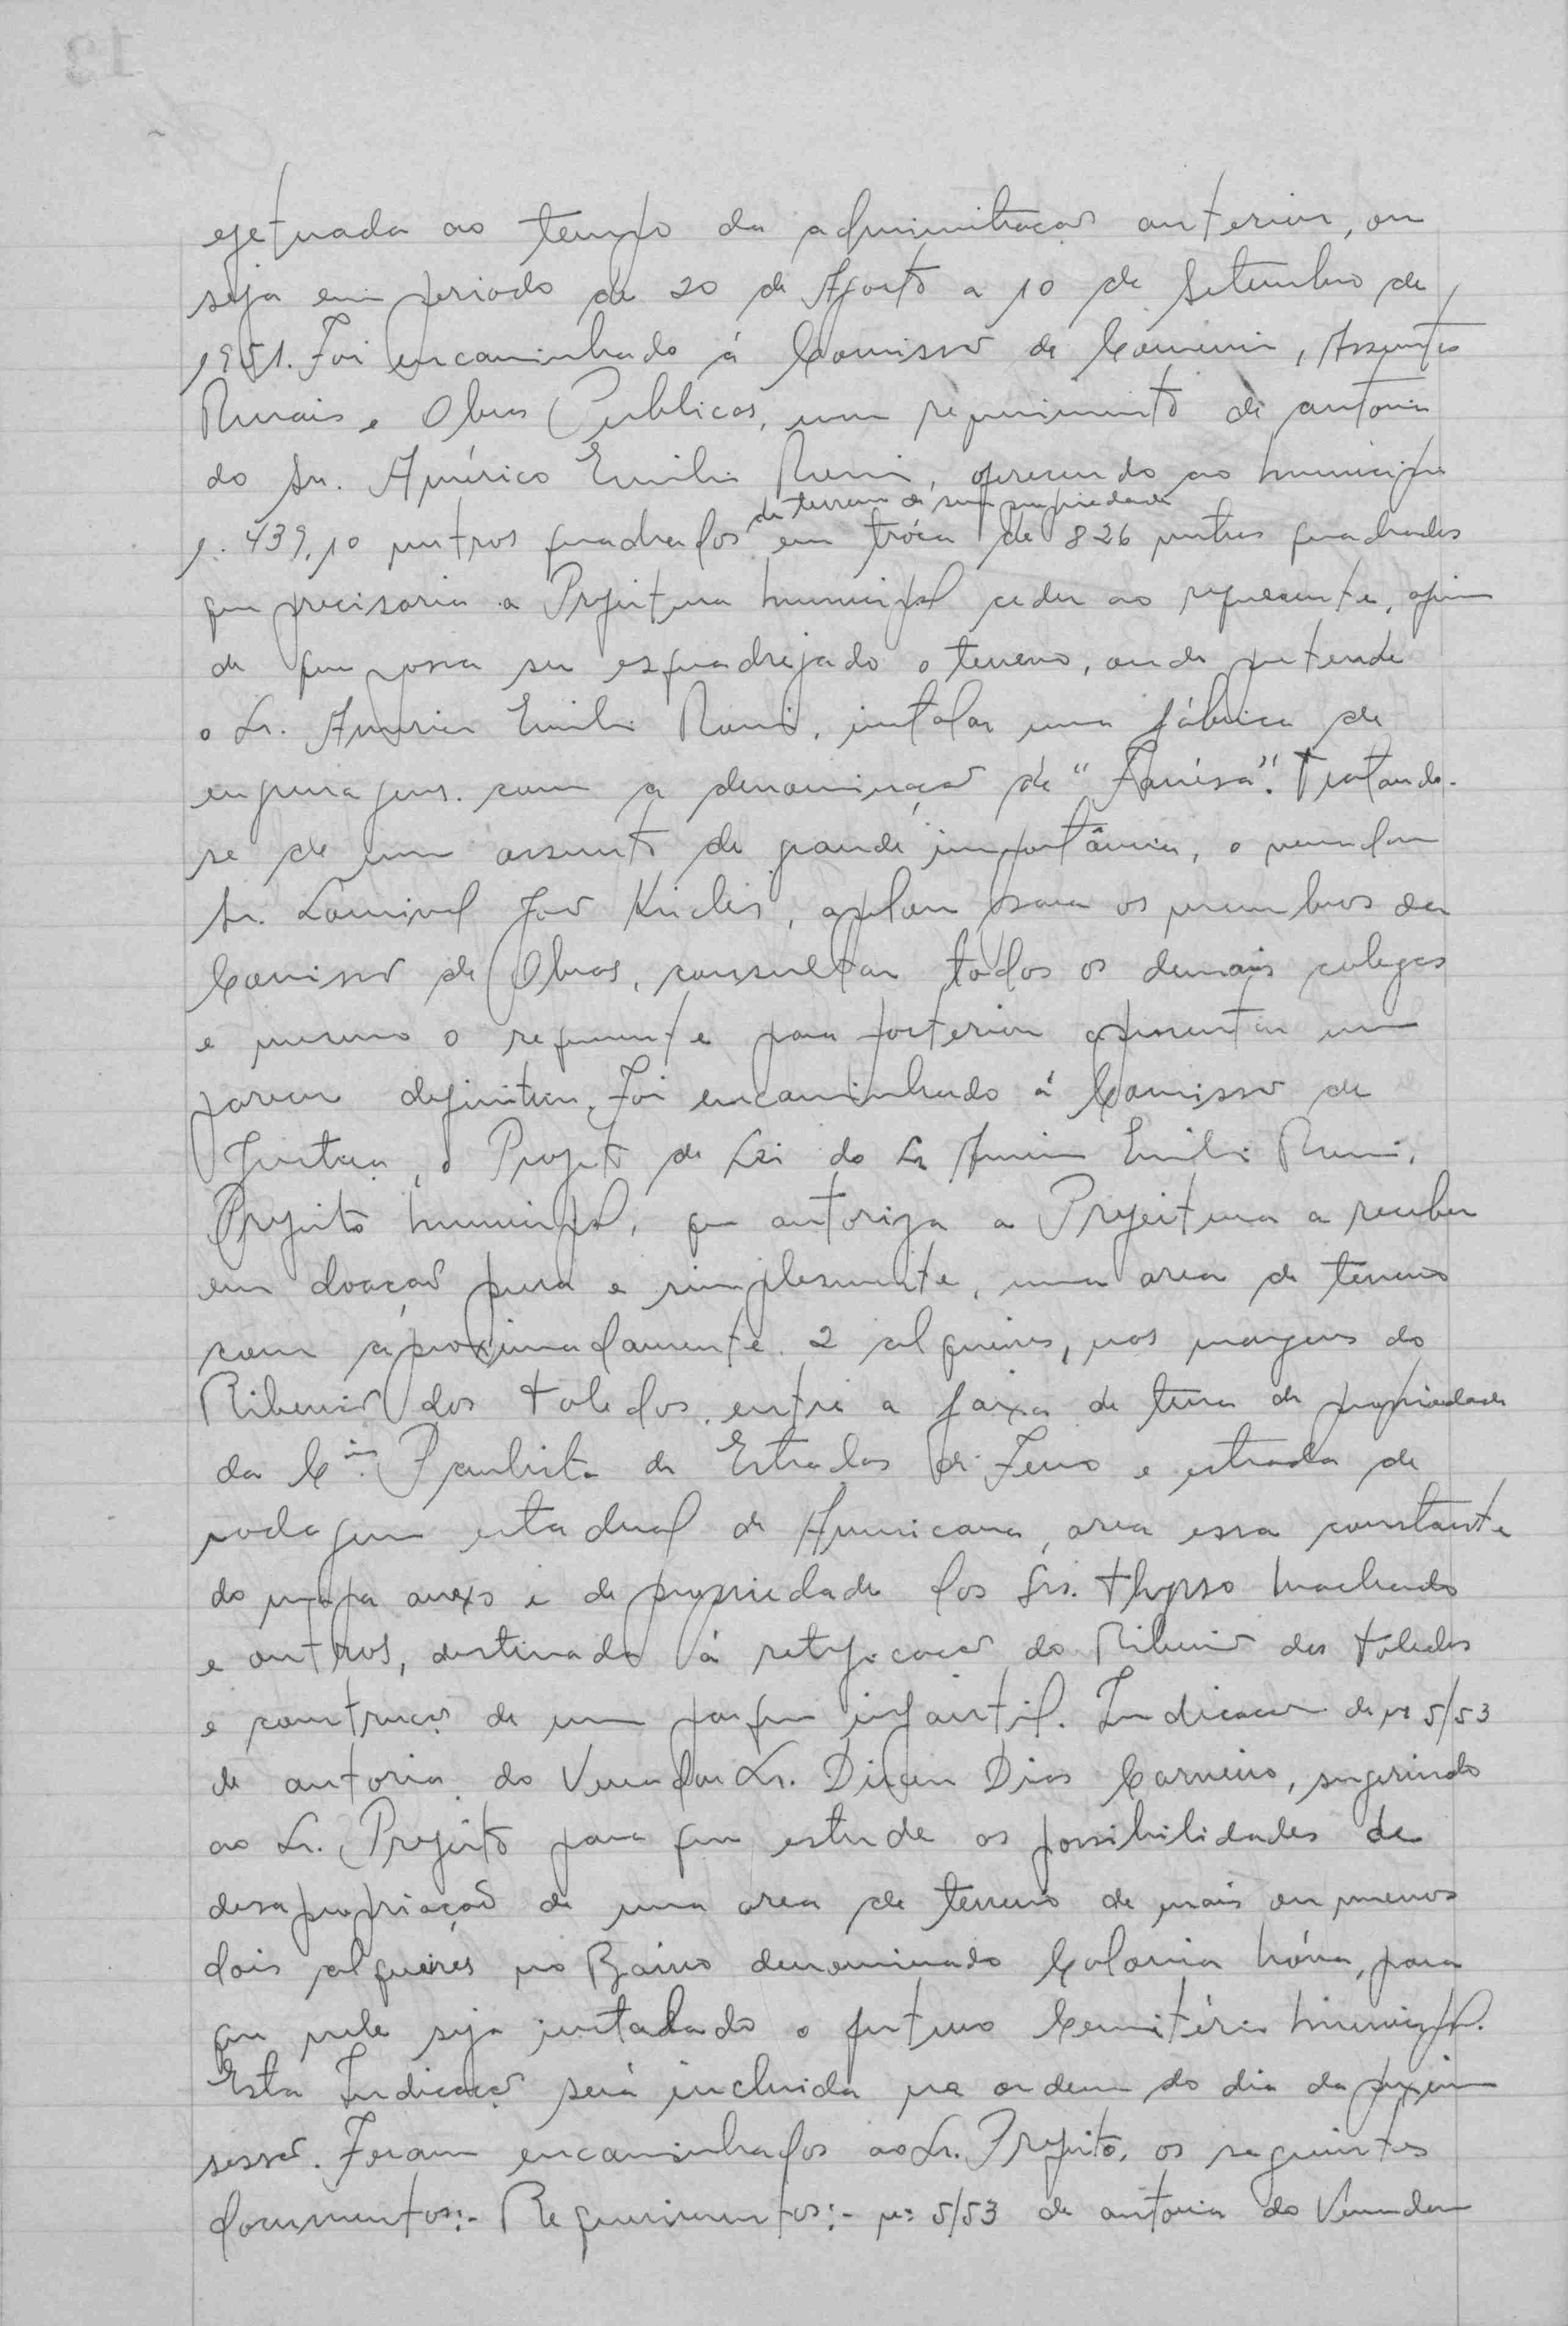 efetuada ao tempo da administração anterior, ou
seja em periodo de 20 de Agosto a 10 de Setembro de
1951. Foi encaminhado á Comissão de Comercio, Assuntos
Rurais e Obras Publicas, um requerimento de autoria
do Sr. Américo Emilio Romi, oferecendo ao municipio
de terreno de sua propriedade
1.439,10 metros quadrados em tróca de 826 metros quadrados
que precisaria a Prefeitura Municipal ceder ao requerente, afim
de que possa ser esquadrejado o terreno, onde pretende
o Sr. Americo Emilio Romi, instalar uma fábrica de
engrenagens com a denominação de "        ". Tratando-
se de um assunto de grande importância, o vereador
Sr. Lourival         , apelou para os membros da
Comissão de Obras, consultar todos os demais colegas
e mesmo o requerente para posterior apresentar um
parecer definitivo. Foi encaminhado á Comissão de
Justiça, o Projeto de Lei do Sr Americo Emilio Romi,
Prefeito Municipal, que autoriza a Prefeitura a receber
em doação pura e simplesmente, uma area de terreno
com aproximadamente 2 alqueires, nas margens do
Ribeirão dos Toledos, entre a faixa de terra de propriedade
da Cia. Paulista de Estradas de Ferro e estrada de
rodagem estadual de Americana, area essa constante
do mapa anexo e de propriedade dos Srs. Thyrso Machado
e outros, destinado á retificação do Ribeirão dos Toledos
e construção de um parque infantil. Indicação de nº 5/53
de autoria do Vereador Sr. Dirceu Dias Carneiro, sugerindo
ao Sr. Prefeito para que estude as possibilidades de
desapropriação de uma area de terreno de mais ou menos
dois alqueires no Bairro denominado Colonia Nóva, para
que nele seja instalado o futuro Cemitério Municipal.
Esta Indicação será incluida na ordem do dia da proxima
sessão. Foram encaminhados ao Sr. Prefeito, os seguintes
documentos:- Requerimentos:- nº 5/53 de autoria do Vereador